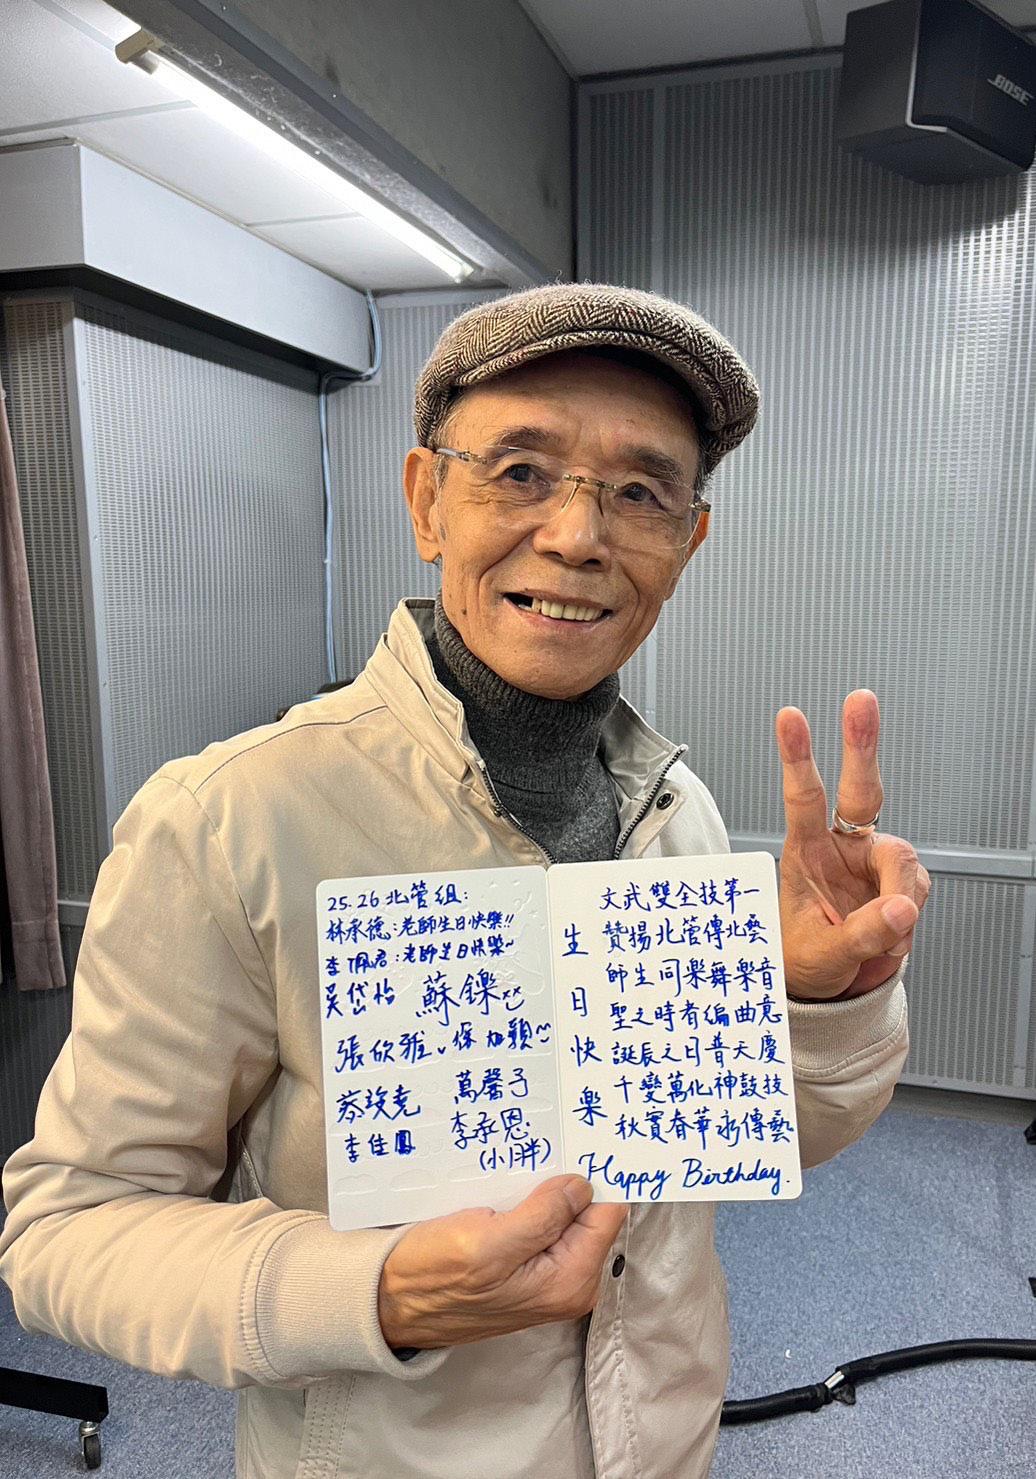 BOSE
25.26 北管組:
林承德:老師生日快樂!!
李佩君:老師生日快樂~
吳岱怡 蘇鑠
張欣雅
蔡竣堯 萬馨予
李佳鳳 李承恩
(小胖)
生日快樂
文武雙全技第一
贊揚北管傳北藝
師生同樂舞樂音
聖之時者編曲意
誕辰之日普天慶
千變萬化神鼓技
秋實春華永傳藝
Happy Birthday.